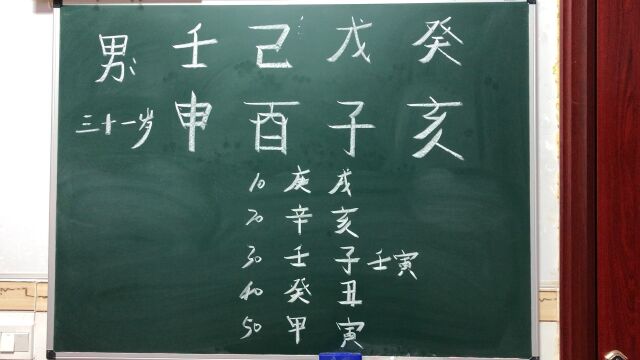 男: 壬 己 戊 癸
三十一岁 申 酉 子 亥
10 庚 戌
20 辛 亥
30 壬 子 壬寅
40 癸 丑
50 甲 寅